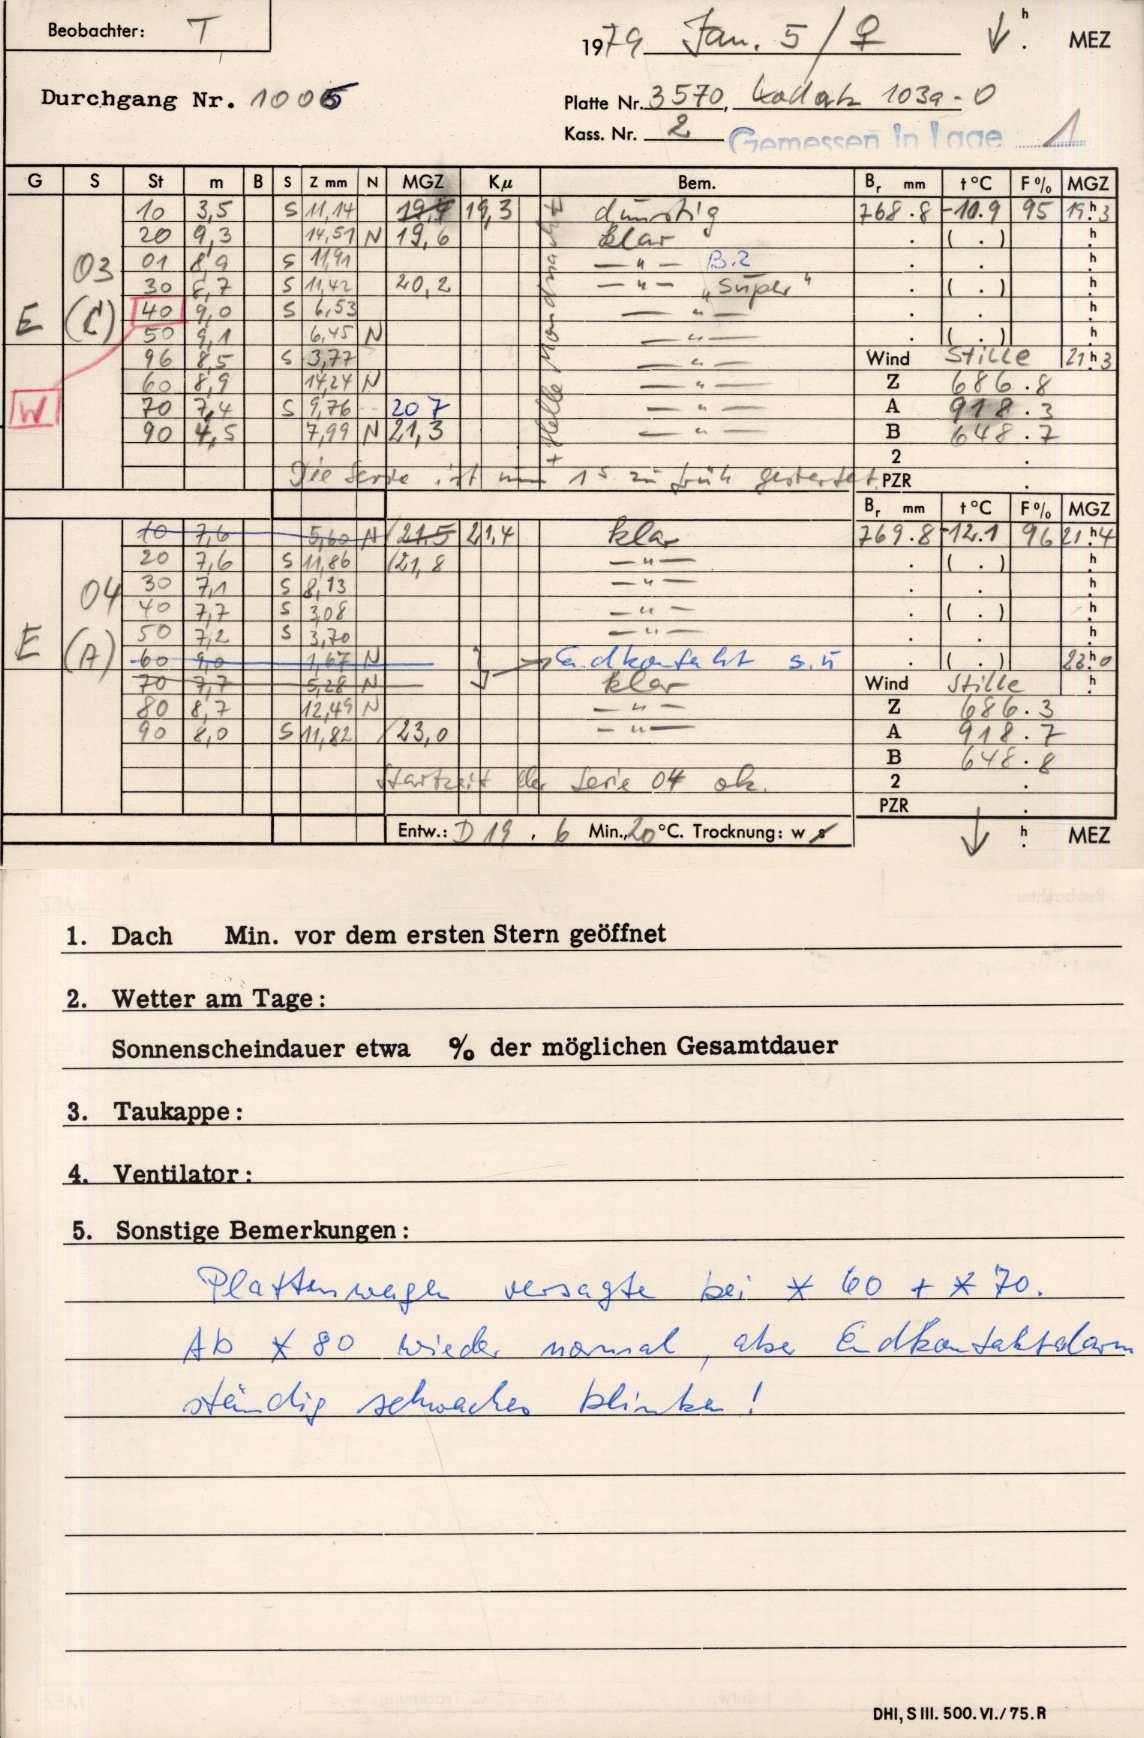 Beobachter: T
1979 Jan. 5 / ♀ ↓ h . MEZ
Durchgang Nr. 1005
Platte Nr. 3570, Kodak 103a-O
Kass. Nr. 2 Gemessen in Lage 1
G S St m B S Z mm N MGZ Kμ Bem. Br mm t°C F% MGZ
10 3,5 S 11,14 19,4 19,3 dunstig 768.8 -10.9 95 19h3
20 9,3 14,51 N 19,6 klar . ( . ) h
03 01 8,9 S 11,91 — " — B.2 . . h
30 8,7 S 11,42 20,2 — " — "Super" . ( . ) h
E (C) 40 9,0 S 6,53 — " — . . h
50 9,1 6,45 N — " — . ( . ) h
96 8,5 S 3,77 — " — Wind Stille 21h3
60 8,9 14,24 N — " — Z 686.8
W 70 7,4 S 9,76 20 7 — " — A 918.3
90 4,5 7,99 N 21,3 — " — B 648.7
+ Helle Mondnacht
2 .
Die Serie ist um 1s zu früh gestartet. PZR .
Br mm t°C F% MGZ
10 7,6 5,60 N /21.5 21,4 klar 769.8 -12.1 96 21h4
20 7,6 S 11,86 /21,8 — " — . ( . ) h
04 30 7,1 S 8,13 — " — . . h
40 7,7 S 3,08 — " — . ( . ) h
E (A) 50 7,2 S 3,70 — " — . . h
60 9,0 1,67 N Endkontakt s.u . ( . ) 23h0
70 7,7 5,28 N klar Wind Stille h
80 8,7 12,49 N — " — Z 686.3
90 8,0 S 11,82 /23,0 — " — A 918.7
B 648.8
Startzeit der Serie 04 ok. 2 .
PZR .
Entw.: D19 . 6 Min., 20 °C. Trocknung: w s ↓ h . MEZ
1. Dach Min. vor dem ersten Stern geöffnet
2. Wetter am Tage:
Sonnenscheindauer etwa % der möglichen Gesamtdauer
3. Taukappe:
4. Ventilator:
5. Sonstige Bemerkungen:
Plattenwagen versagte bei * 60 + * 70.
Ab * 80 wieder normal, aber Endkontaktalarm
ständig schwaches blinken!
DHI, S III. 500. VI./75. R